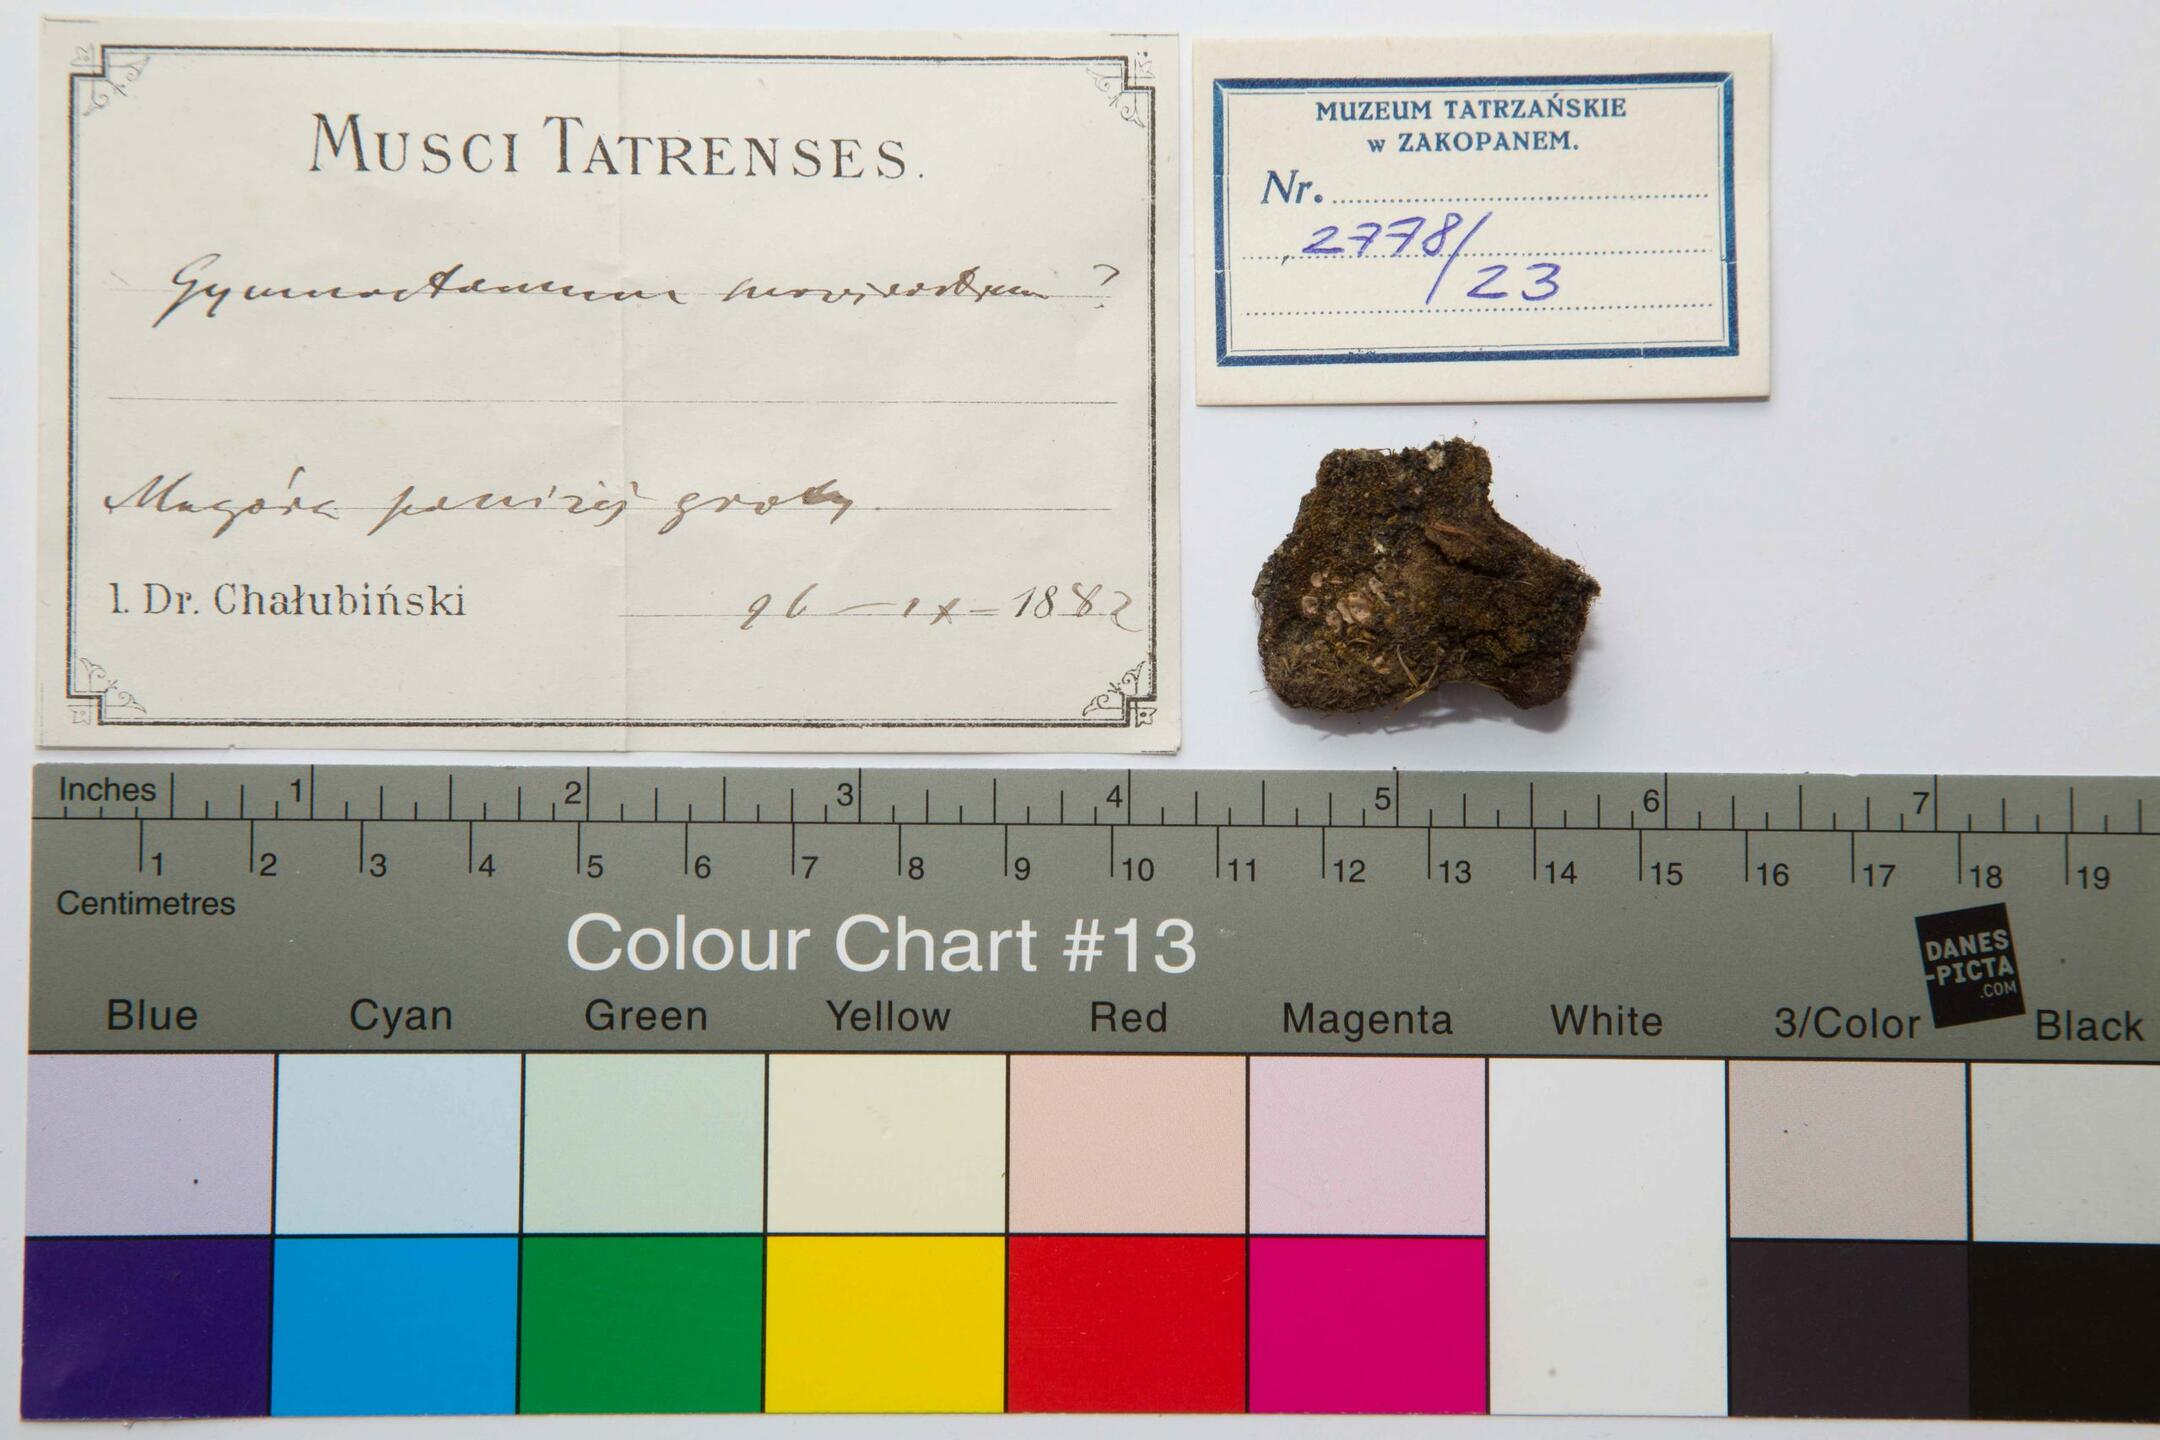 MUSCI TATRENSES.
Gymnostomum ?
Magóra poniżéj groty.
l. Dr. Chałubiński
26 - IX - 1882
MUZEUM TATRZAŃSKIE
w ZAKOPANEM.
Nr.
2778/
23
Inches 1 2 3 4 5 6 7
1 2 3 4 5 6 7 8 9 10 11 12 13 14 15 16 17 18 19
Centimetres
Colour Chart #13
DANES
-PICTA
.COM
Blue Cyan Green Yellow Red Magenta White 3/Color Black